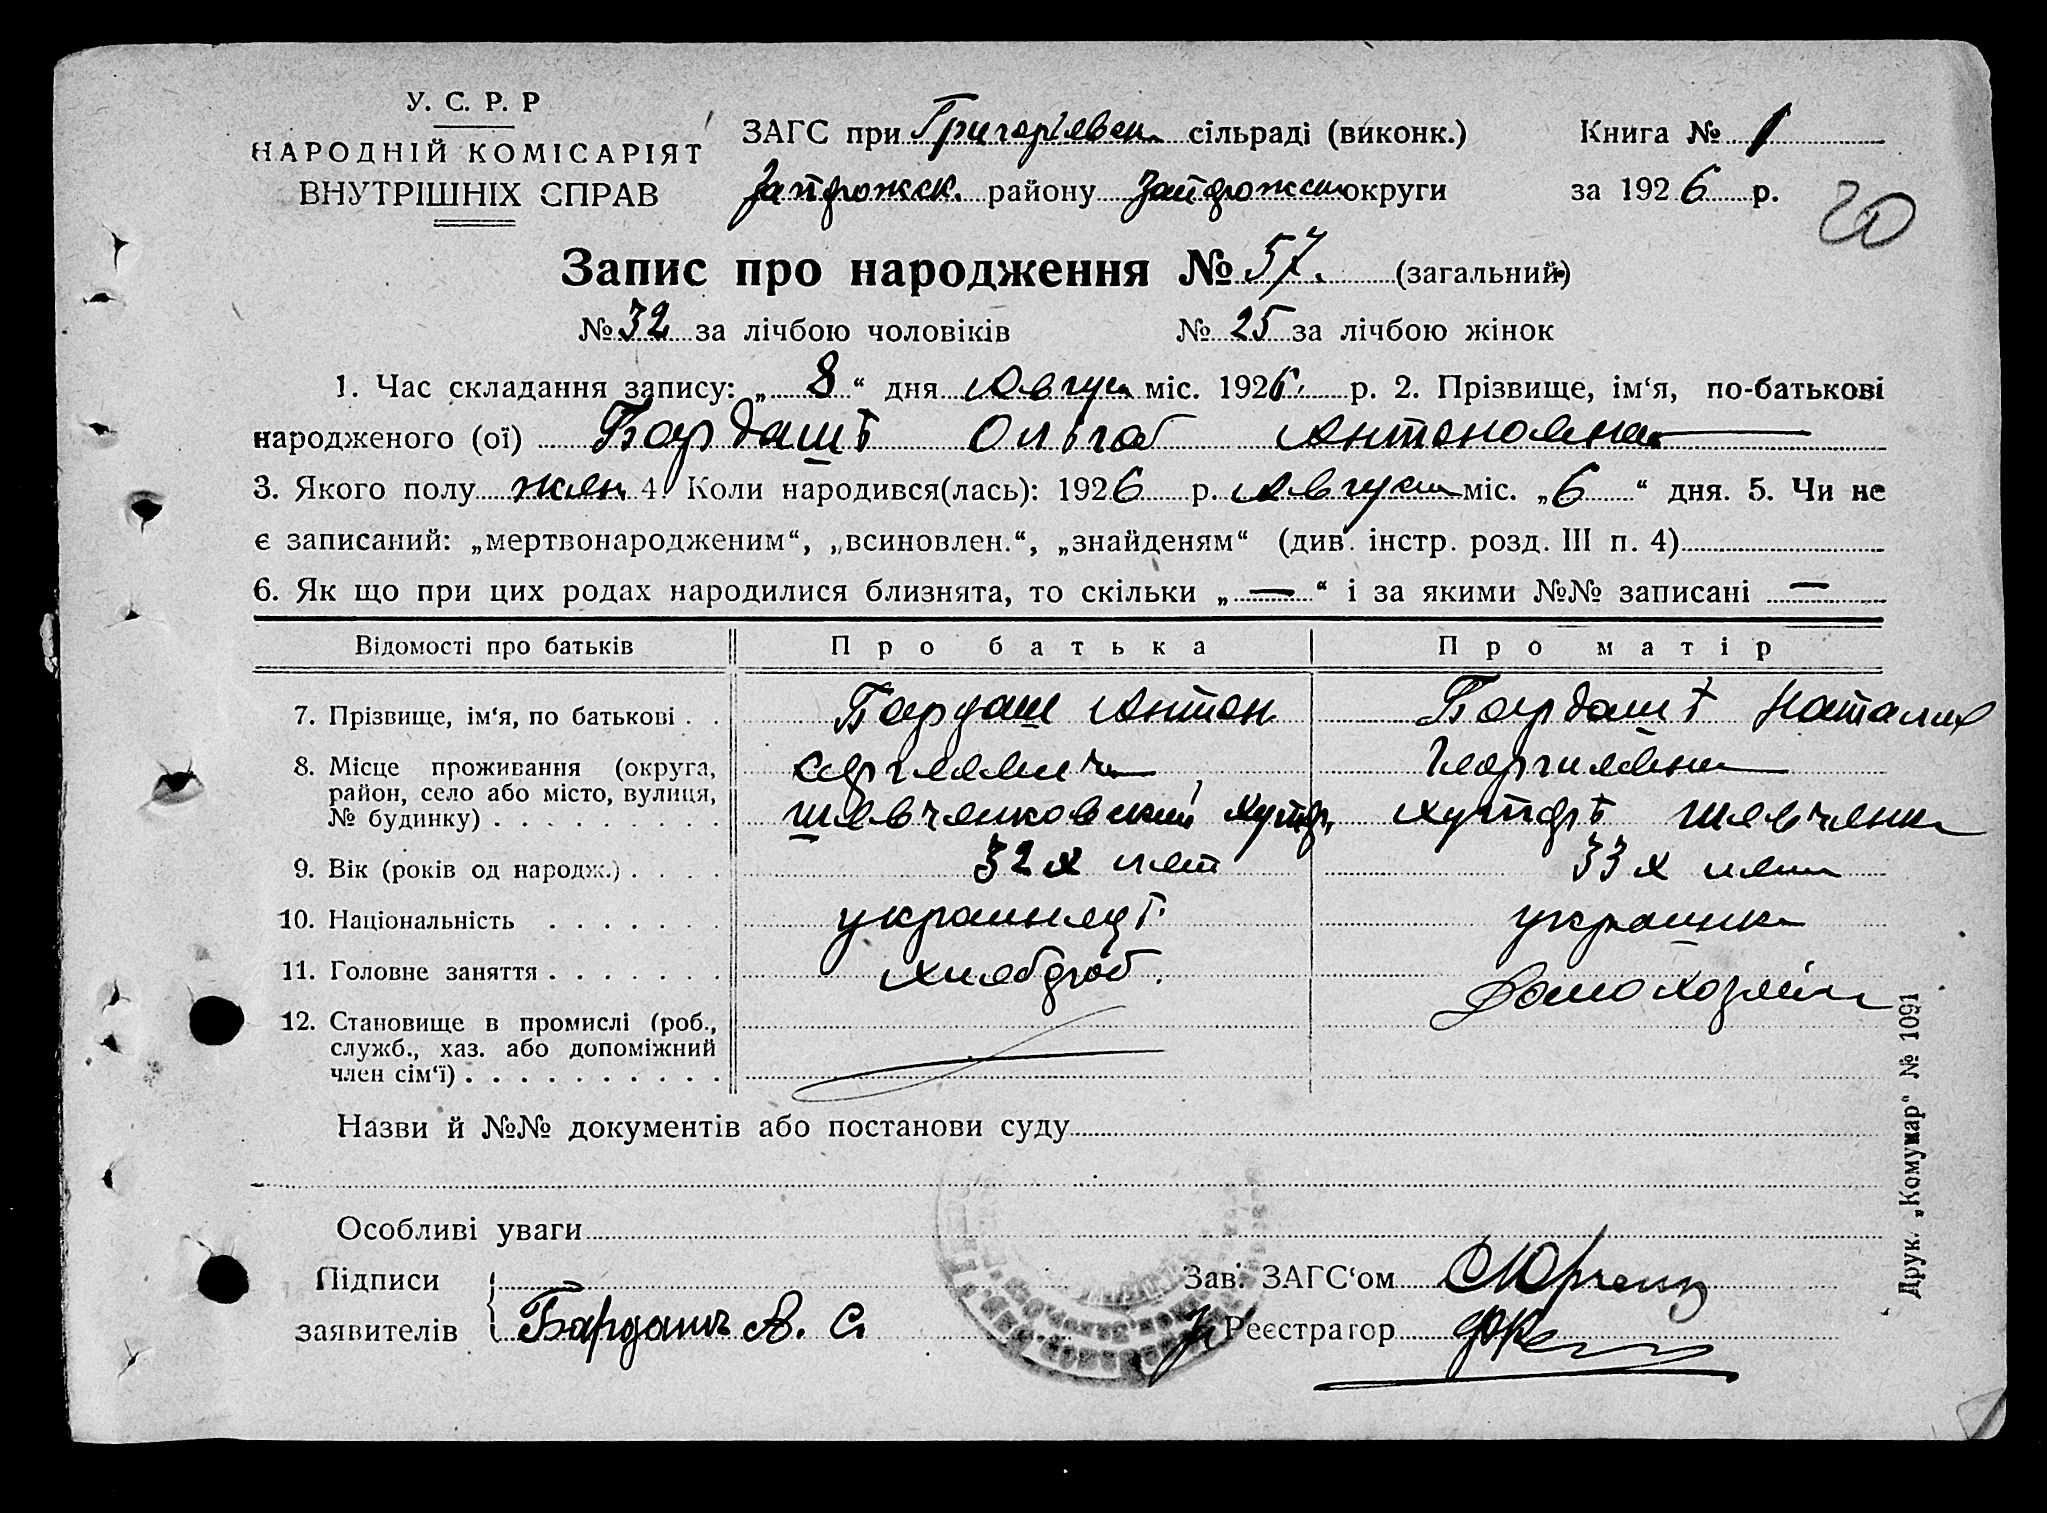 У. С. Р. Р
НАРОДНІЙ КОМІСАРІЯТ
ВНУТРІШНІХ СПРАВ
ЗАГС при Григорьевск. сільраді (виконк.)
Книга № 1
Запорожск. району Запорожск округи
за 1926 р.
20
Запис про народження № 57. (загальний)
№ 32 за лічбою чоловіків № 25 за лічбою жінок
1. Час складання запису: „ 8 “ дня Август міс. 1926 р. 2. Прізвище, ім‘я, по-батькові
народженого (ої) Бардашъ Ольга Антоновна
3. Якого полу жен. 4. Коли народився(лась): 1926 р. Август міс. „ 6 “ дня. 5. Чи не
є записаний: „мертвонародженим“, „всиновлен.“, „знайденям“ (див. інстр. розд. III п. 4)
6. Як що при цих родах народилися близнята, то скільки „ — “ і за якими №№ записані —
Відомості про батьків Про батька Про матір
7. Прізвище, ім‘я, по батькові . . Бардаш Антон Бардашъ Наталия
8. Місце проживання (округа, Сергеевич Георгиевна
район, село або місто, вулиця,
№ будинку) . . . . . . . . . Шевченковский хутор, хуторъ Шевченк
9. Вік (років од народж.) . . . . 32х лет 33х лет
10. Національність . . . . . . . украинецъ украинка
11. Головне заняття . . . . . . . хлебороб. Домохозяйк
12. Становище в промислі (роб.,
служб., хаз. або допоміжний
член сім‘ї) . . . . . . . . . .
Назви й №№ документів або постанови суду
Особливі уваги
Підписи
заявителів Бардашъ А. С.
Зав. ЗАГС‘ом
Реєстратор
Друк. „Комунар“ № 1091